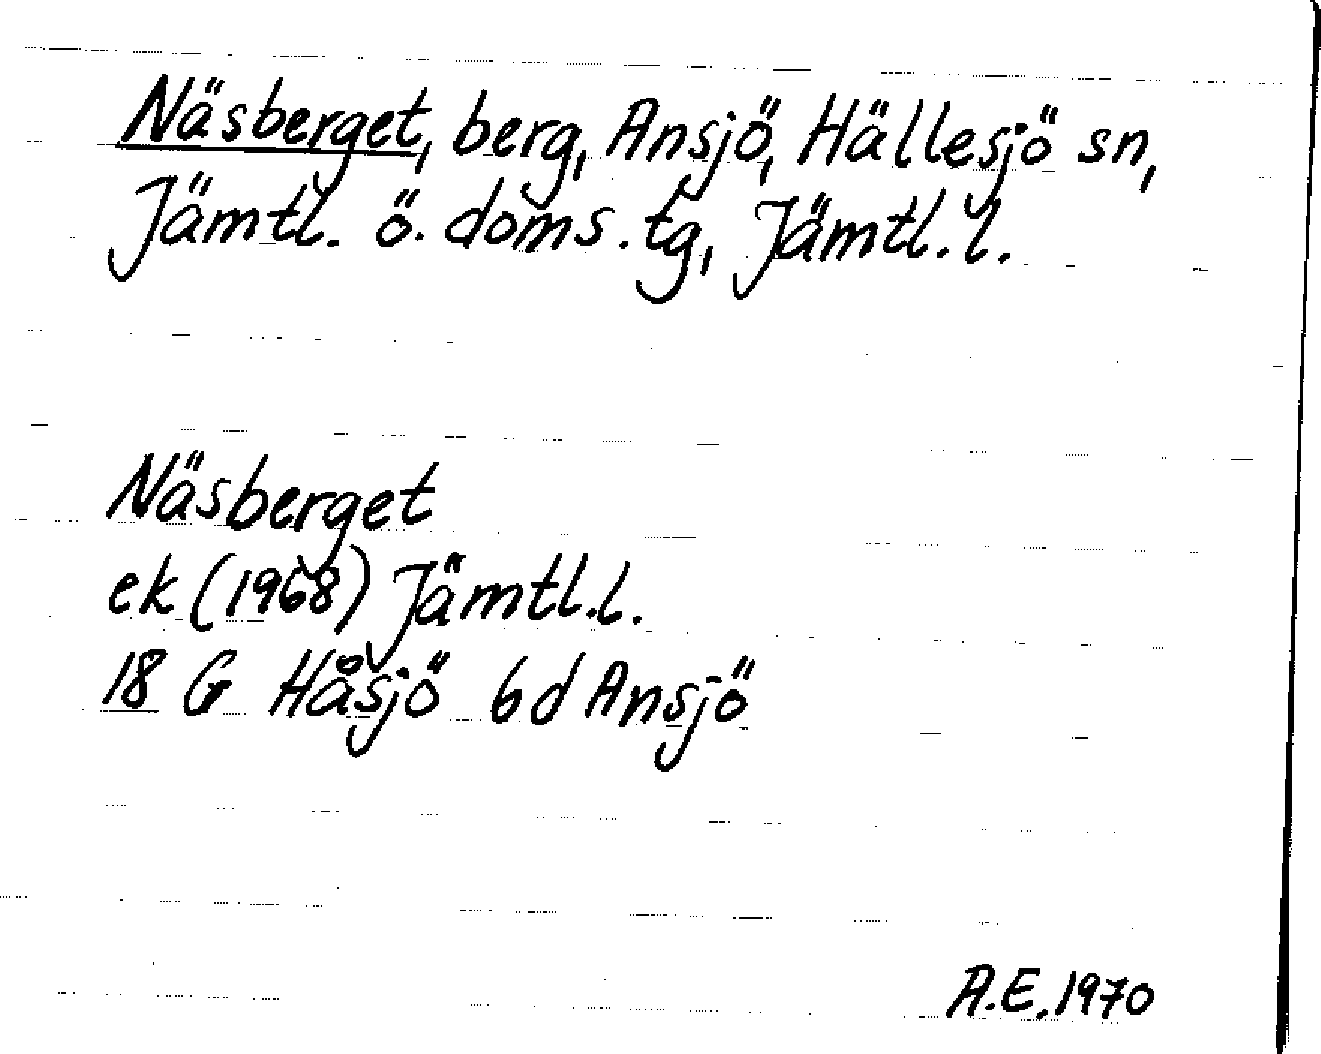 Näsberget, berg, Ansjö, Hällesjö sn,
Jämtl. ö. doms. tg, Jämtl. l.
Näsberget
ek (1968) Jämtl. l.
18 G Håsjö 6d Ansjö
A.E. 1970